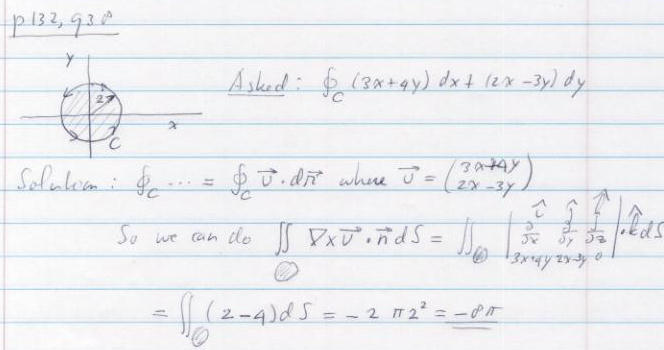 p132, q38
y
2
x
C
Asked: ∮_C (3x+4y) dx + (2x-3y) dy
Solution: ∮_C ... = ∮_C v⃗ · dr⃗ where v⃗ = (3x+4y 2x-3y)
So we can do ∬ ∇×v⃗ · n⃗ dS = ∬ | î ĵ k̂ ∂/∂x ∂/∂y ∂/∂z 3x+4y 2x-3y 0 | · k̂ dS
= ∬ (2-4) dS = -2 π2² = -8π